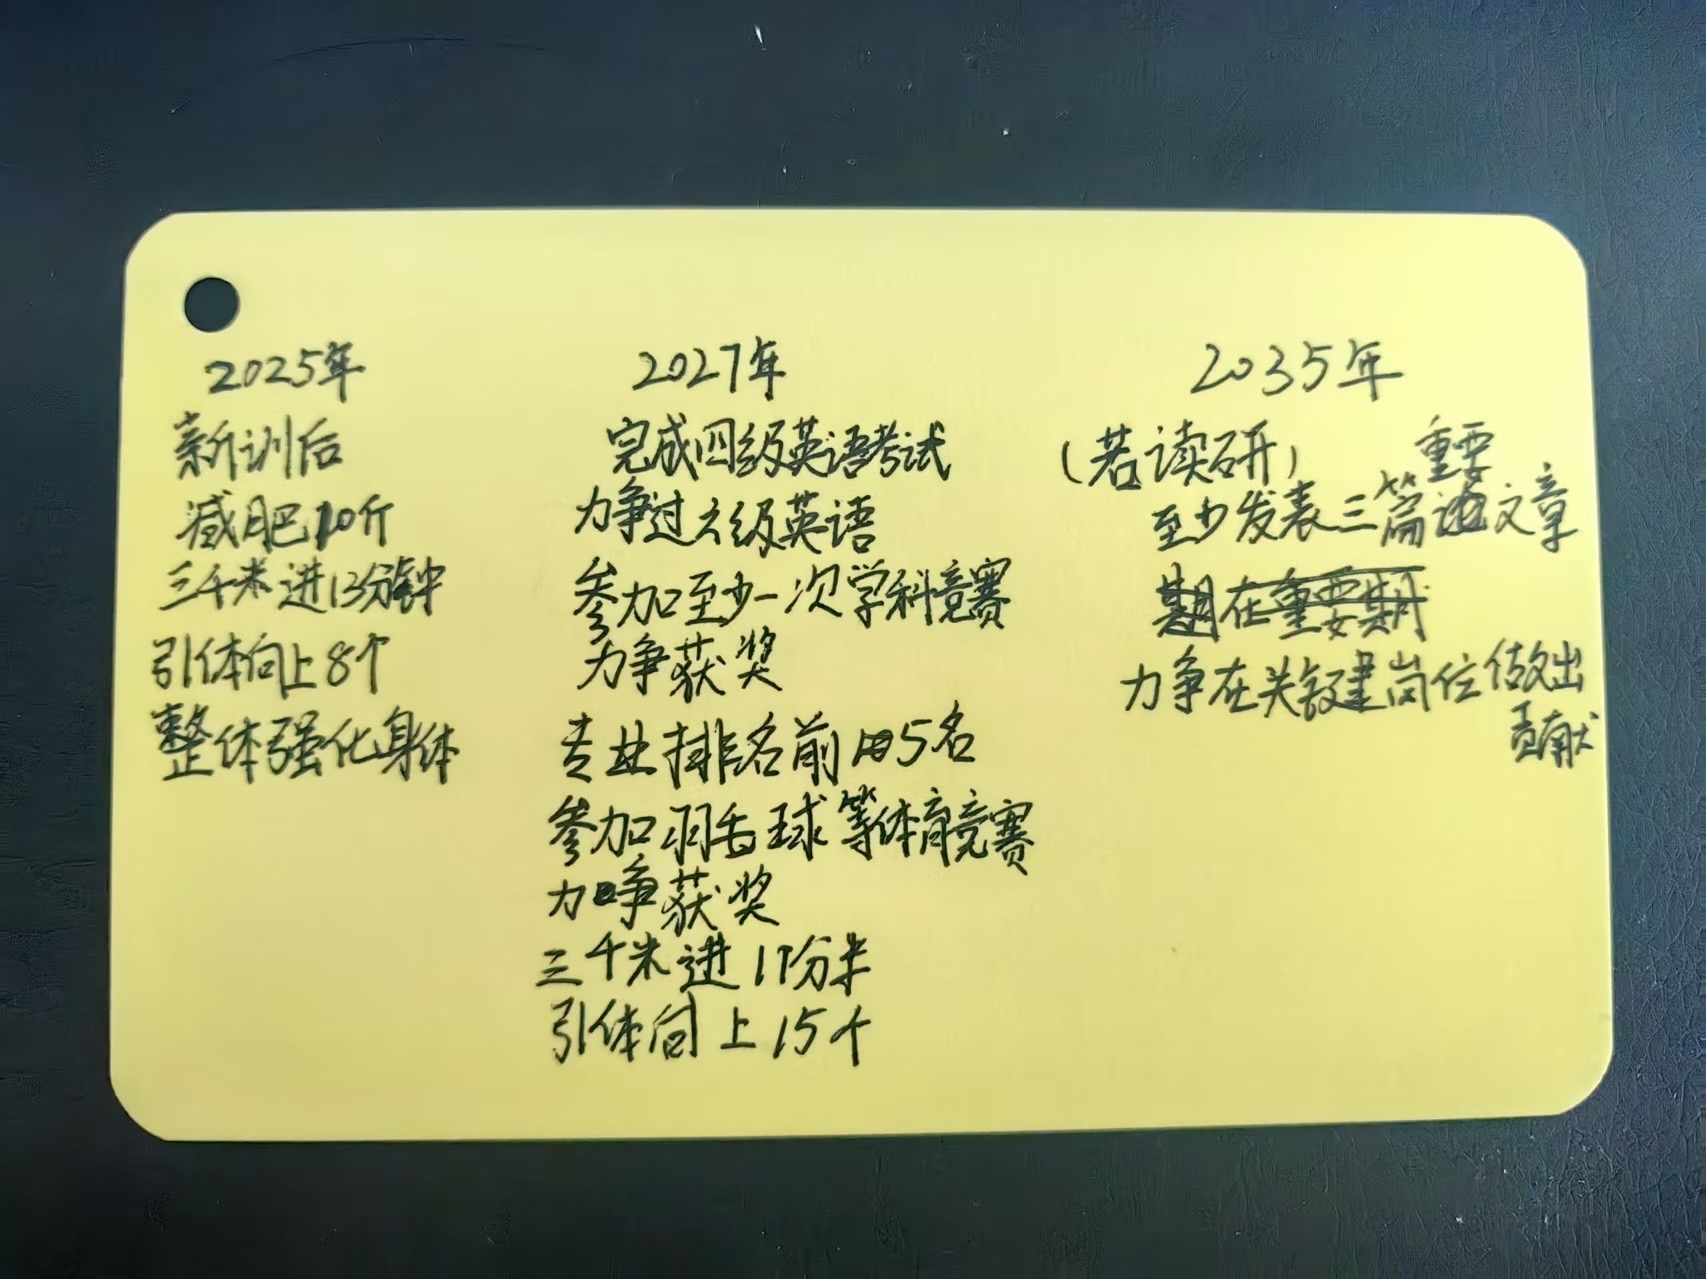 2025年
新训后
减肥10斤
三千米进13分钟
引体向上8个
整体强化身体
2027年
完成四级英语考试
力争过六级英语
参加至少一次学科竞赛
力争获奖
专业排名前5名
参加羽毛球等体育竞赛
力争获奖
三千米进11分半
引体向上15个
2035年
(若读研)
重要
至少发表三篇文章
期在重要期
力争在关键岗位做出
贡献